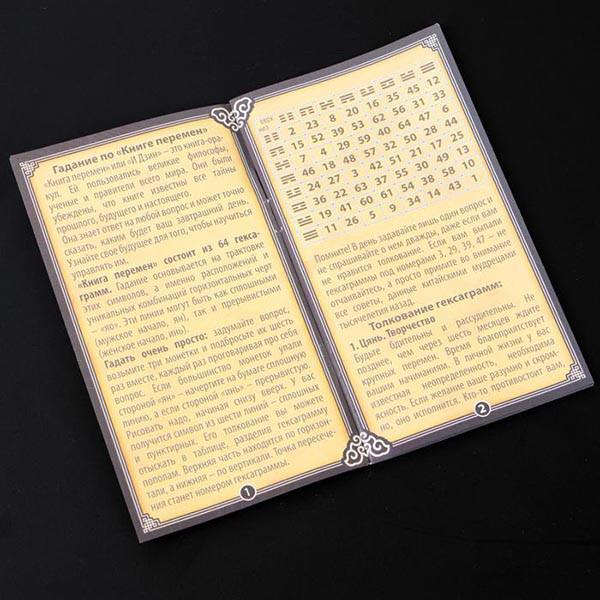 Гадание по «Книге перемен»
«Книга перемен» или «И Дзин» – это книга-ора-
кул. Ей пользовались великие философы,
ученые и правители всего мира. Они были
убеждены, что книге известны все тайны
прошлого, будущего и настоящего.
Она знает ответ на любой вопрос и может точно
сказать, каким будет ваш завтрашний день.
Узнайте свое будущее для того, чтобы научиться
управлять им.
«Книга перемен» состоит из 64 гекса-
грамм. Гадание основывается на трактовке
этих символов, а именно расположения и
уникальных комбинаций горизонтальных черт
– «яо». Эти линии могут быть как сплошными
(мужское начало, ян), так и прерывистыми
(женское начало, инь).
Гадать очень просто: задумайте вопрос,
возьмите три монетки и подбросьте их шесть
раз вместе, каждый раз проговаривая про себя
вопрос. Если большинство монеток упали
стороной «ян» – начертите на бумаге сплошную
линию, а если стороной «инь» – прерывистую.
Рисовать надо, начиная снизу вверх. У вас
получится символ из шести линий – сплошных
и пунктирных. Его толкование вы можете
отыскать в таблице, разделив гексаграмму
пополам. Верхняя часть находится по горизон-
тали, а нижняя – по вертикали. Точка пересече-
ния станет номером гексаграммы.
1
верх
низ
2 23 8 20 16 35 45 12
15 52 39 53 62 56 31 33
7 4 29 59 40 64 47 6
46 18 48 57 32 50 28 44
24 27 3 42 51 21 17 25
36 22 63 37 55 30 49 13
19 41 60 61 54 38 58 10
11 26 5 9 34 14 43 1
Помните! В день задавайте лишь один вопрос и
не спрашивайте о нем дважды, даже если вам
не нравится толкование. Если вам выпали
гексаграммы под номерами 3, 29, 39, 47 – не
отчаивайтесь, а просто примите во внимание
все советы, данные китайскими мудрецами
тысячелетия назад.
Толкование гексаграмм:
1. Цянь. Творчество
Будьте бдительны и рассудительны. Не
позднее, чем через шесть месяцев ждите
крупных перемен. Время благоприятствует
вашим начинаниям. В личной жизни у вас
известная неопределенность, необходима
ясность. Если желание ваше разумно и скром-
но, оно исполнится. Кто-то противостоит вам,
2